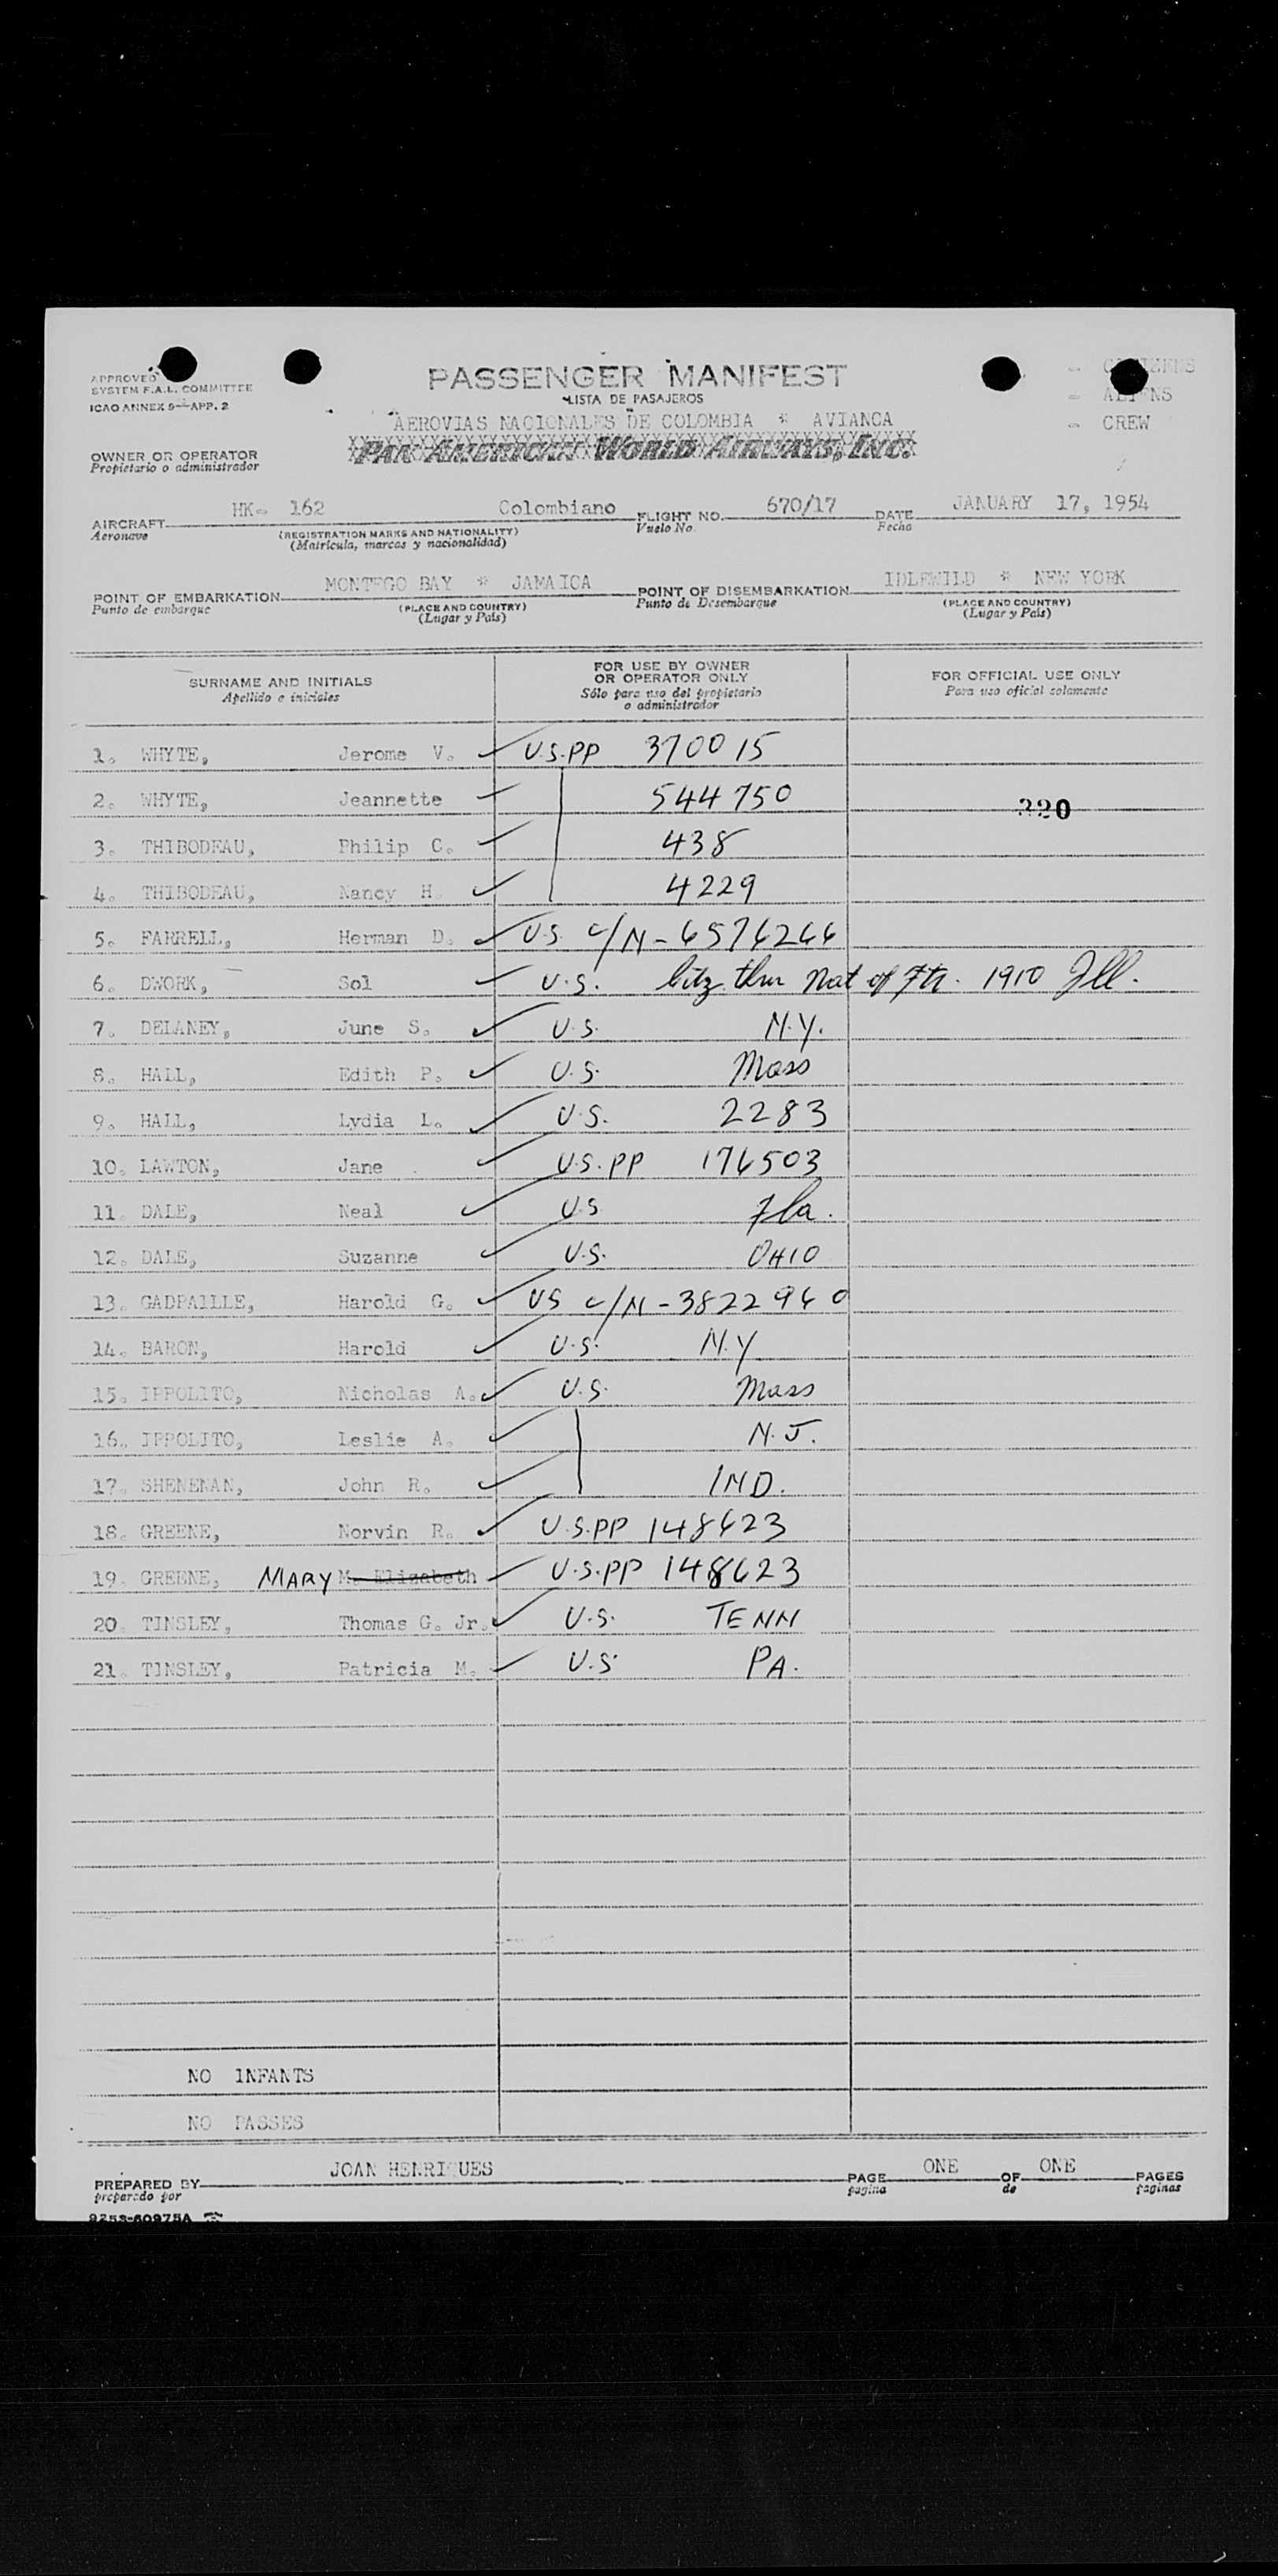 APPROVED
SYSTEM F.A.L. COMMITTEE
ICAO ANNEX 9-APP. 2
PASSENGER MANIFEST
LISTA DE PASAJEROS
CITIZENS
ALIENS
CREW
AEROVIAS NACIONALES DE COLOMBIA * AVIANCA
PAN AMERICAN WORLD AIRWAYS, INC.
OWNER OR OPERATOR
Propietario o administrador
AIRCRAFT HK- 162 Colombiano FLIGHT NO. 670/17 DATE JANUARY 17, 1954
Aeronave (REGISTRATION MARKS AND NATIONALITY) Vuelo No. Fecha
(Matrícula, marcas y nacionalidad)
POINT OF EMBARKATION MONTEGO BAY * JAMAICA POINT OF DISEMBARKATION IDLEWILD * NEW YORK
Punto de embarque (PLACE AND COUNTRY) Punto de Desembarque (PLACE AND COUNTRY)
(Lugar y País) (Lugar y País)
SURNAME AND INITIALS
Apellido e iniciales
FOR USE BY OWNER
OR OPERATOR ONLY
Sólo para uso del propietario
o administrador
FOR OFFICIAL USE ONLY
Para uso oficial solamente
1. WHYTE, Jerome V. U.S.PP 370015
2. WHYTE, Jeannette 544750
320
3. THIBODEAU, Philip C. 438
4. THIBODEAU, Nancy H. 4229
5. FARRELL, Herman D. U.S. C/N-6576266
6. DWORK, Sol U.S. Citz. thru Nat of Fth. 1910 Ill.
7. DELANEY, June S. U.S. N.Y.
8. HALL, Edith P. U.S. Mass
9. HALL, Lydia L. U.S. 2283
10. LAWTON, Jane U.S.PP 176503
11. DALE, Neal U.S Fla.
12. DALE, Suzanne U.S. OHIO
13. GADPAILLE, Harold G. US C/N-3822960
14. BARON, Harold U.S. N.Y
15. IPPOLITO, Nicholas A. U.S. Mass
16. IPPOLITO, Leslie A. N.J.
17. SHENEMAN, John R. IND.
18. GREENE, Norvin R. U.S.PP 148623
19. GREENE, MARY M. Elizabeth U.S.PP 148623
20. TINSLEY, Thomas G. Jr. U.S. TENN
21. TINSLEY, Patricia M. U.S. PA.
NO INFANTS
NO PASSES
PREPARED BY JOAN HENRIQUES PAGE ONE OF ONE PAGES
preparado por página de páginas
9253-60975A